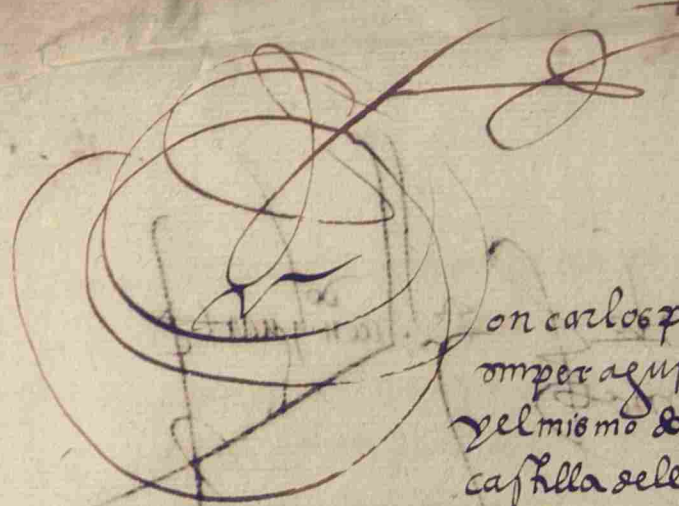 on carlos p
omper agus
yel mismo do
castilla dele